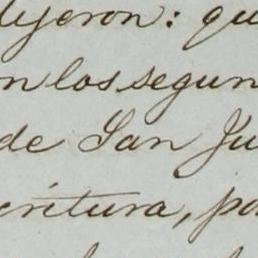 dijeron: qu
on los segun
de San Ju
critura, po